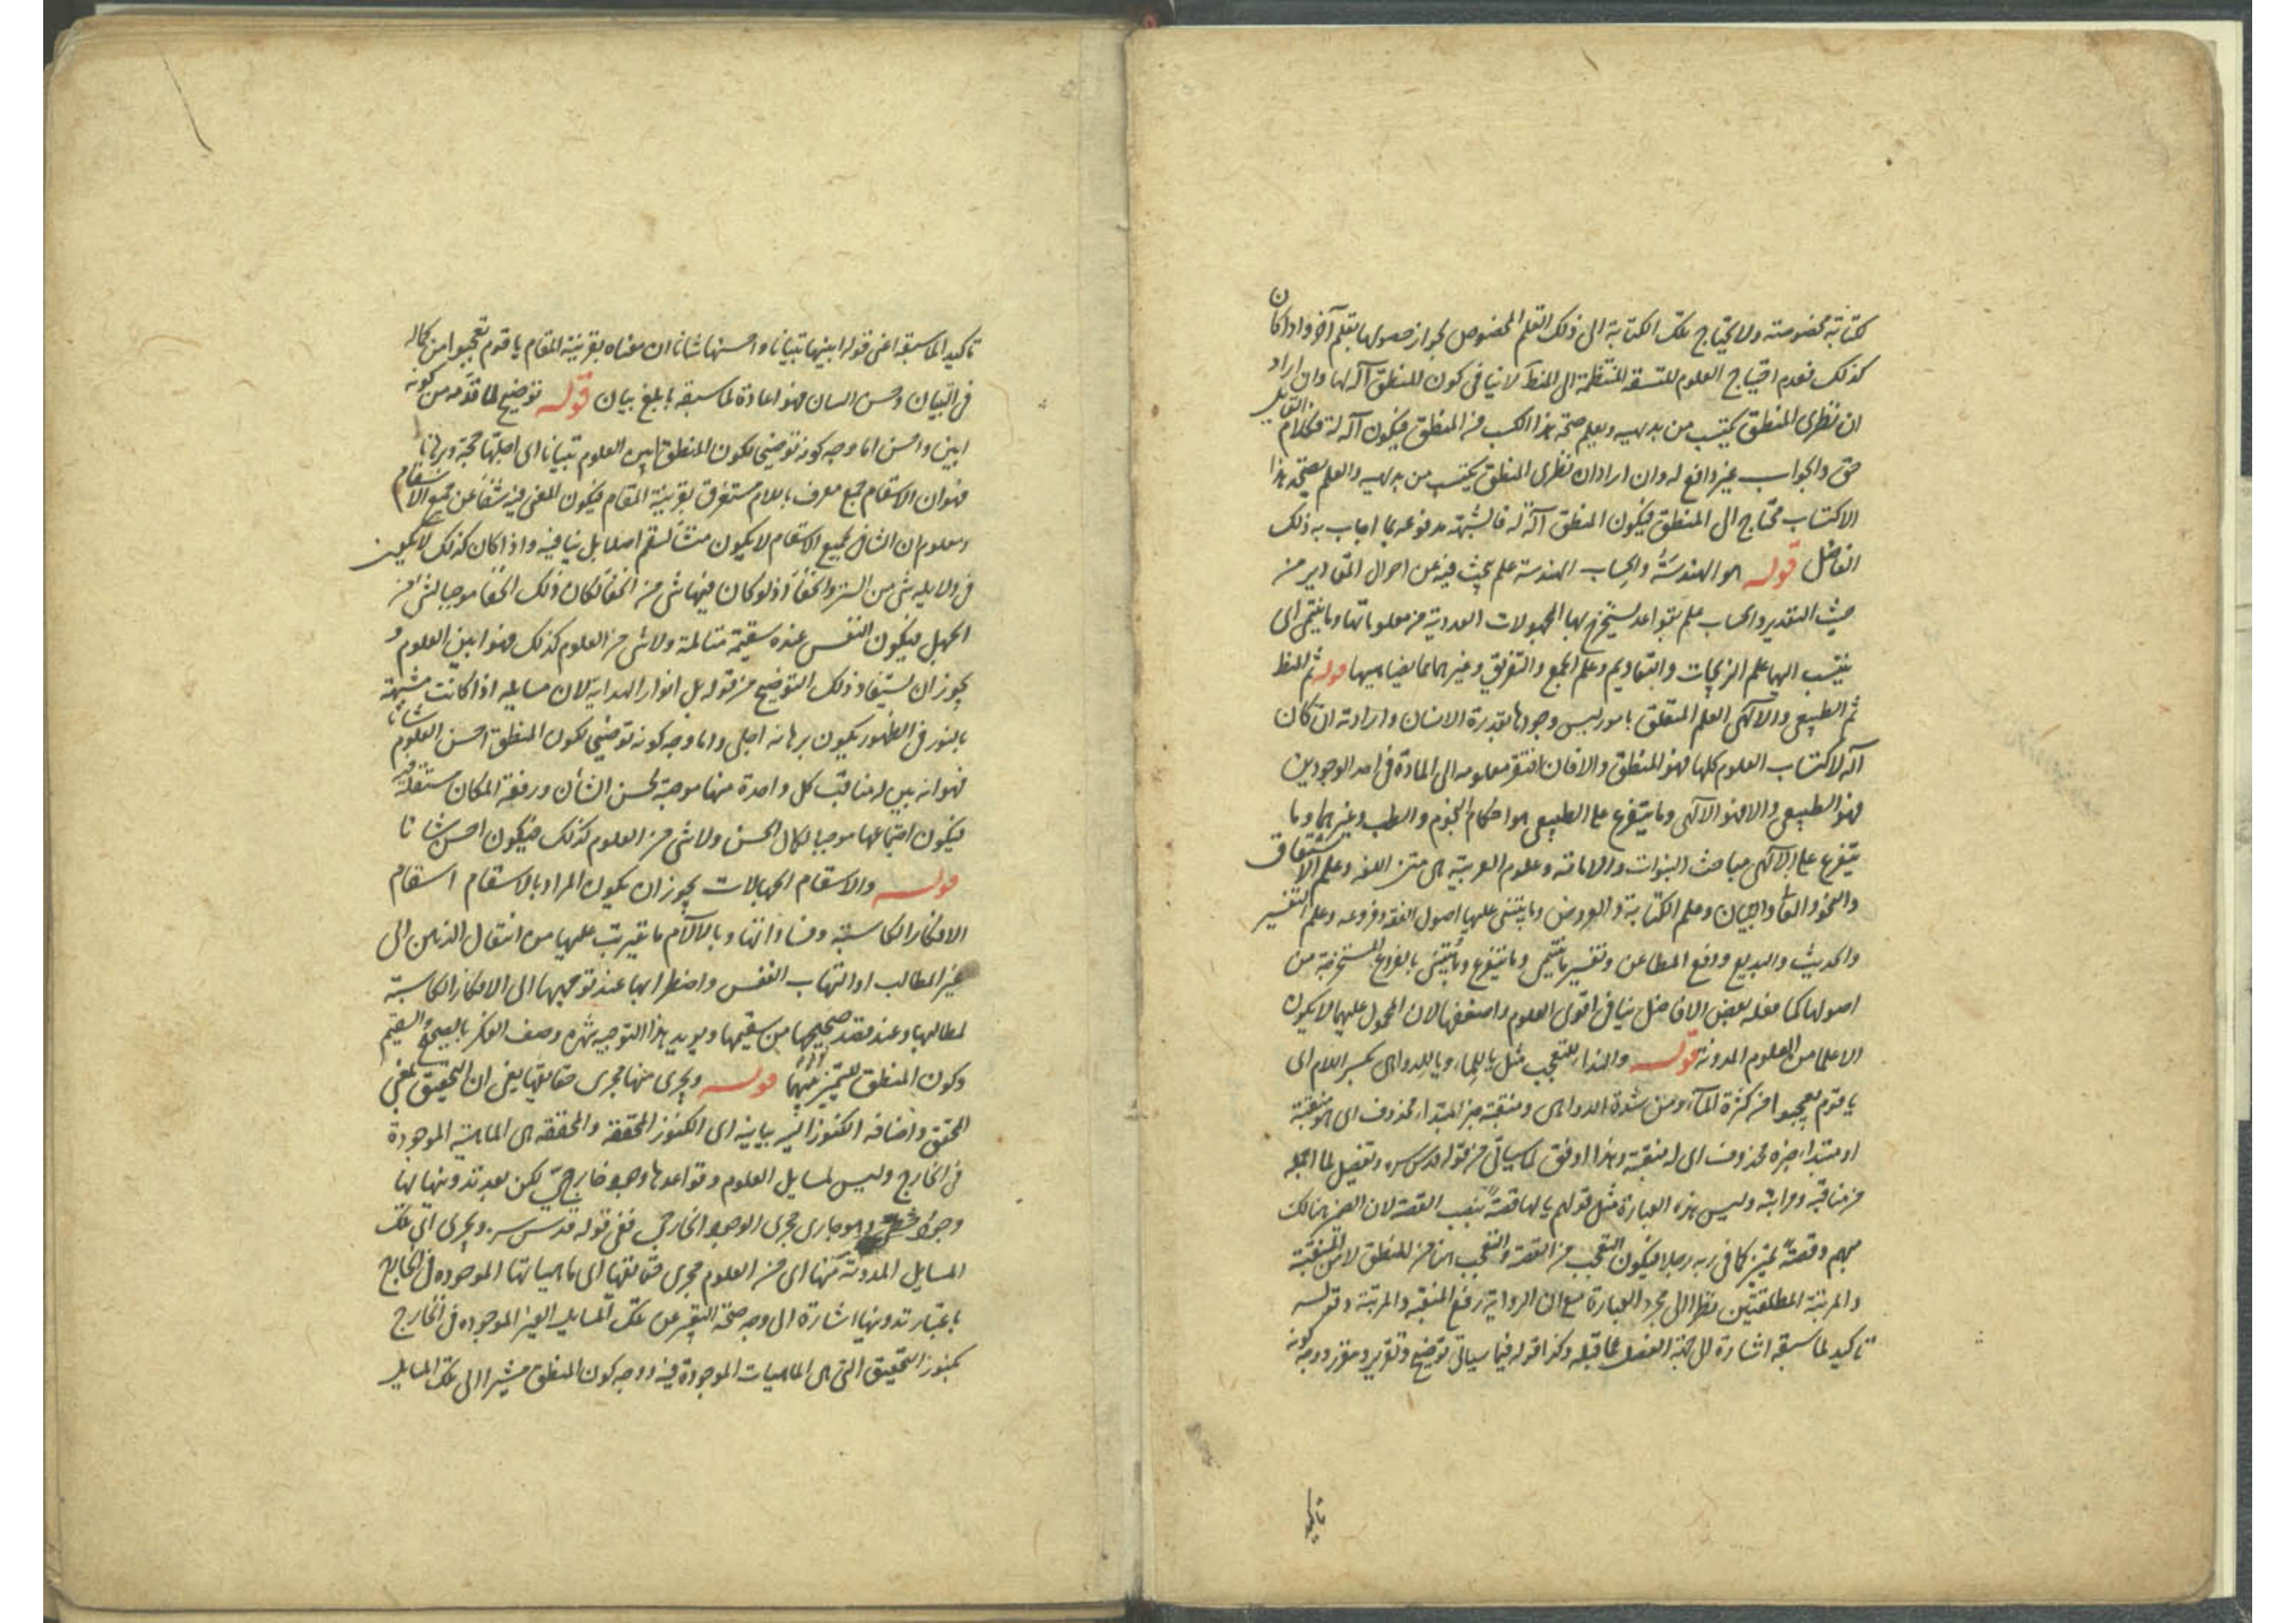 كتابة مخصوصة ولا يحتاج تلك الكتابة الى ذلك القلم المخصوص لجواز حصولها بقلم آخر واذا كان
كذلك فعدم احتياج العلوم المتسقة المنتظمة الى المنطق لا ينافى كون المنطق آلة لها وان اراد
ان نظرى المنطق يكتسب من بديهيه ويعلم صحة هذا الكسب من المنطق فيكون آلة له فكلام القايل
حق والجواب غير دافع له وان اراد ان نظرى المنطق يكتسب من بديهيه والعلم بصحة هذا
الاكتساب محتاج الى المنطق فيكون المنطق آلة له فالشبهة مدفوعة بما اجاب به ذلك
الفاضل قوله هو الهندسة والحساب الهندسة علم يبحث فيه عن احوال المقادير من
حيث التقدير والحساب علم بقواعد يستخرج بها المجهولات العددية من معلوماتها وما ينتمى الى
ينتسب اليها علم الزيجات والتقاويم وعلم الجمع والتفريق وغيرهما مما يضاهيها قوله ثم المنط
ثم الطبيعى والالهى العلم المتعلق بامور ليس وجودها بقدرة الانسان وارادته ان كان
آلة لاكتساب العلوم كلها فهو المنطق والا فان افتقر معلومه الى المادة فى احد الوجودين
فهو الطبيعى والا فهو الالهى وما يتفرع على الطبيعى هو احكام النجوم والطب وغيرهما وما
يتفرع على الالهى مباحث النبوات والامامة وعلوم العربية هى متن اللغة وعلم الاشتقاق
والنحو والمعانى والبيان وعلم الكتابة والعروض وما يبتنى عليها اصول الفقه وفروعه وعلم التفسير
والحديث والبديع ودفع المطاعن وتفسير ما ينتمى وما يتفرع وما يبتنى بالفروع المستخرجة من
اصولها كما فعله بعض الافاضل ينافى اقوى العلوم واضعفها لان المحمول عليهما لا يكون
الا علما من العلوم المدونة قوله والنداء للتعجب مثل يا للماء ويا للدواهى بكسر اللام اى
يا قوم تعجبوا من كثرة الماء ومن شدة الدواهى ومنقبة خبر المبتداء محذوف اى هو منقبة
او مبتداء خبره محذوف اى له منقبة وهذا اوفق لما سيأتى من قوله قدس سره وتفصيل لما اجمله
من مناقبه ومراتبه وليس هذه العبارة مثل قولهم يا لها قصة بنصب القصة لان الضمير هنالك
مبهم وقصة تميز كما فى ربه رجلا فيكون التعجب من القصة والتعجب هنا من المنطق لا من المنقبة
والمرتبة المطلقتين نظرا الى مجرد العبارة مع ان الرواية رفع المنقبة والمرتبة وقوله
تاكيد لما سبقه اشارة الى جهة الفصل عما قبله وكذا قوله فيما سياتى توضيح وتقرير ومقرر ووجه كونه
تاكيد
تاكيد الما سبقه اعنى قوله ابينها تبيانا واحسنها شانا ان معناه بقرينة المقام يا قوم تعجبوا من كماله
فى التبيان وحسن الشان فهو اعادة لما سبقه بابلغ بيان قوله توضيح لما قدمه من كونه
ابين واحسن اما وجه كونه توضيحا لكون المنطق ابين العلوم تبيانا اى اجلها حجة وبرهانا
فهو ان الاسقام جمع معرف باللام مستغرق بقرينة المقام فيكون المعنى فيه شفاء عن جميع الاسقام
ومعلوم ان الشافى لجميع الاسقام لا يكون منشأ لسقم اصلا بل ينافيه واذا كان كذلك لا يكون
فى دلايله شىء من الستر والخفاء اذ لو كان فيها شىء من الخفاء لكان ذلك الخفاء موجبا لشىء من
الجهل فيكون النفس عنده سقيمة متالمة ولا شىء من العلوم كذلك فهو ابين العلوم و
يجوز ان يستفاد ذلك التوضيح من قوله بل انوار الهداية لان مسايله اذا كانت مشبهة
بالنور فى الظهور يكون برهانه اجلى واما وجه كونه توضيحا لكون المنطق احسن العلوم شانا
فهو انه بين له مناقب كل واحدة منها موجبة لحسن الشأن ورفعة المكان مستقلة فيه
فيكون اجتماعها موجبا لكمال الحسن ولا شىء من العلوم كذلك فيكون احسن شانا
قوله والاسقام الجهالات يجوز ان يكون المراد بالاسقام اسقام
الافكار الكاسبة وفساداتها وبالآلام ما يترتب عليها من انتقال الذهن الى
غير المطالب او التهاب النفس واضطرابها عند توجهها الى الافكار الكاسبة
لمطالبها وعند فقد صحيحها من سقيمها ويويد هذا التوجيه شهرة وصف الفكر بالصحة والسقيم
وكون المنطق للتمييز بينهما قوله ويجرى منها مجرى حقايقها يعنى ان التحقيق بمعنى
المحقق واضافة الكنوز اليه بيانية اى الكنوز المحققة والمحققة هى الماهية الموجودة
فى الخارج وليس لمسايل العلوم وقواعدها وجود خارجى لكن بعد تدوينها لها
وجود خطى وهو جارى مجرى الوجود الخارجى ففى قوله قدس سره ويجرى اى تلك
المسايل المدونة منها اى من العلوم مجرى حقائقها اى ماهياتها الموجودة فى الخارج
باعتبار تدوينها اشارة الى وجه صحة التعبير عن تلك المسايل الغير الموجودة فى الخارج
بكنوز التحقيق التى هى الماهيات الموجودة فيه ووجه كون المنطق مشيرا الى تلك المسايل